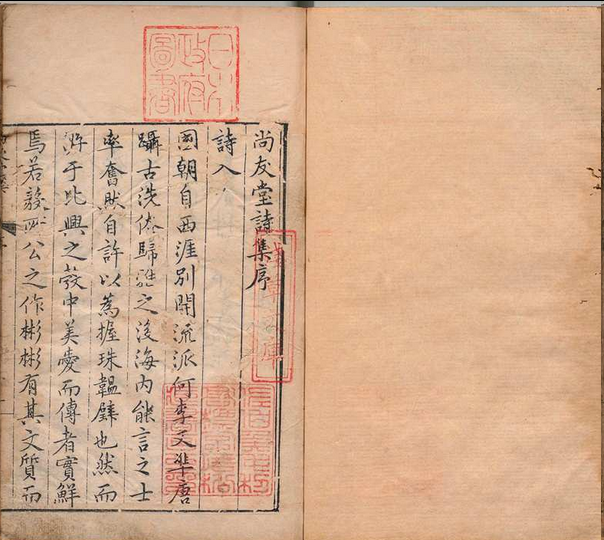 尚友堂詩集序
詩入
國朝自西涯別開流派何李又準唐
躡古洗俗歸雅之後海内能言之士
率奮然自許以為握珠韞璧也然而
游于比興之發中美愛而傳者實鮮
焉若毅所公之作彬彬有其文質而
日本政府圖書